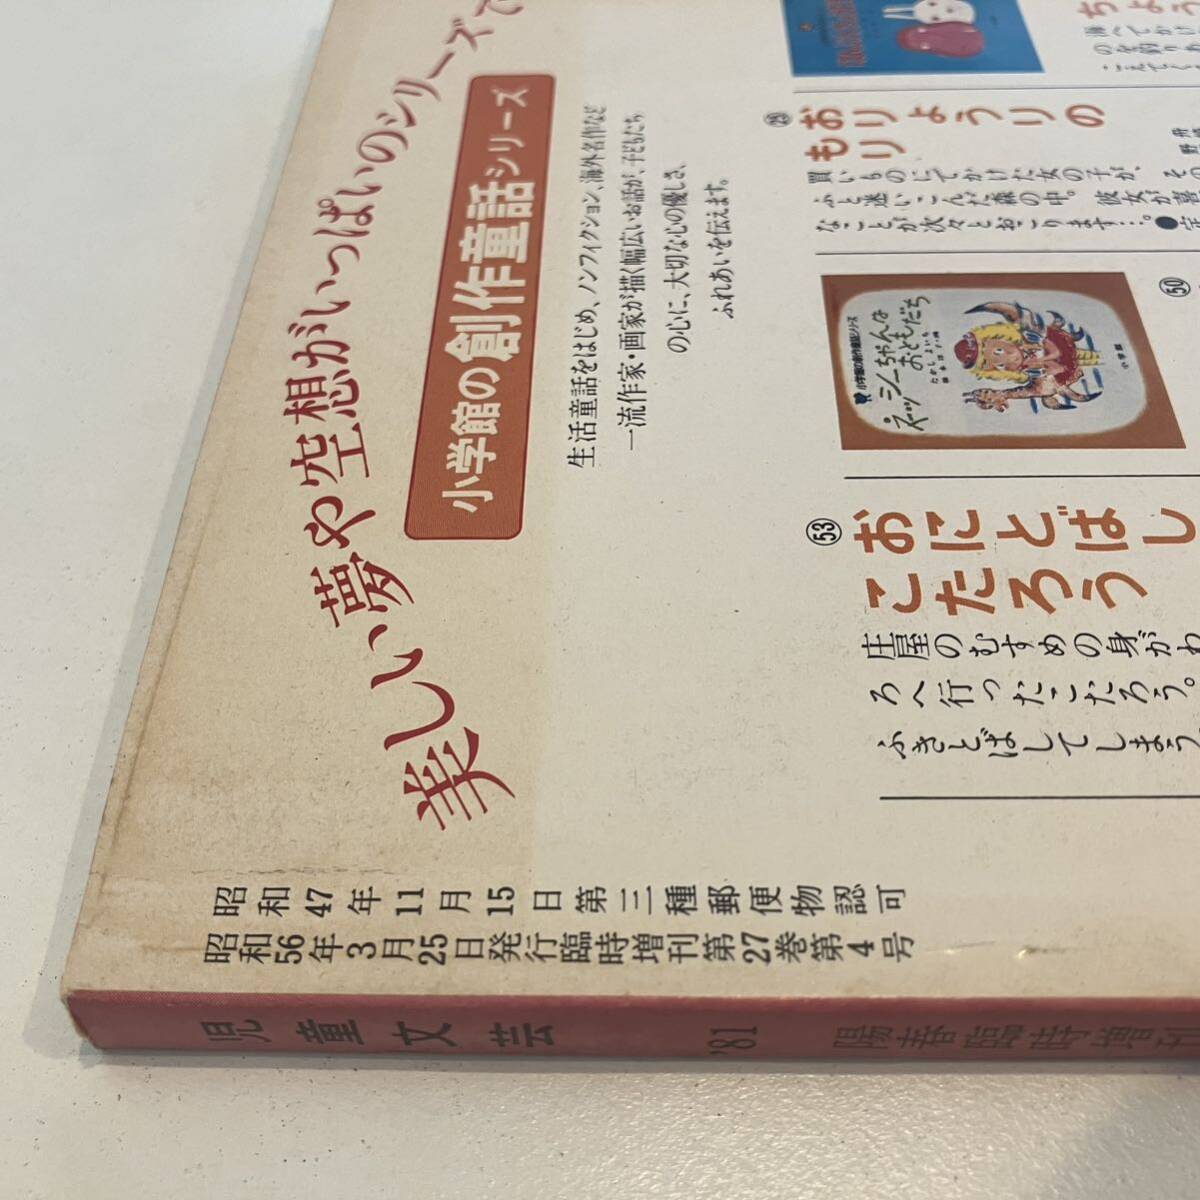 美しい夢や空想がいっぱいのシリーズで
小学館の創作童話シリーズ
生活童話をはじめ、ノンフィクション、海外名作など
一流作家・画家が描く幅広いお話が、子どもたち
の心に、大切な心の優しさ、
ふれあいを伝えます。
ちよう
㉙
おりょうりの
もり
買いものにでかけた女の子が、
ふと迷いこんだ森の中。彼女が
なことが次々とおこります…。●定
㊿
小学館の創作童話シリーズ
ネッシーちゃんは
おともだち
小学館
53
おにどばし
こたろう
庄屋のむすめの身がわ
ろへ行ったこたろう。
ふきとばしてしまう
昭和47年11月15日第三種郵便物認可
昭和56年3月25日発行臨時増刊第27巻第4号
児童文芸 '81 陽春臨時増刊